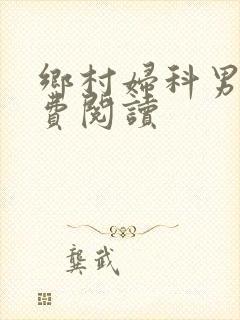 鄉村婦科男
費閱讀
龔武